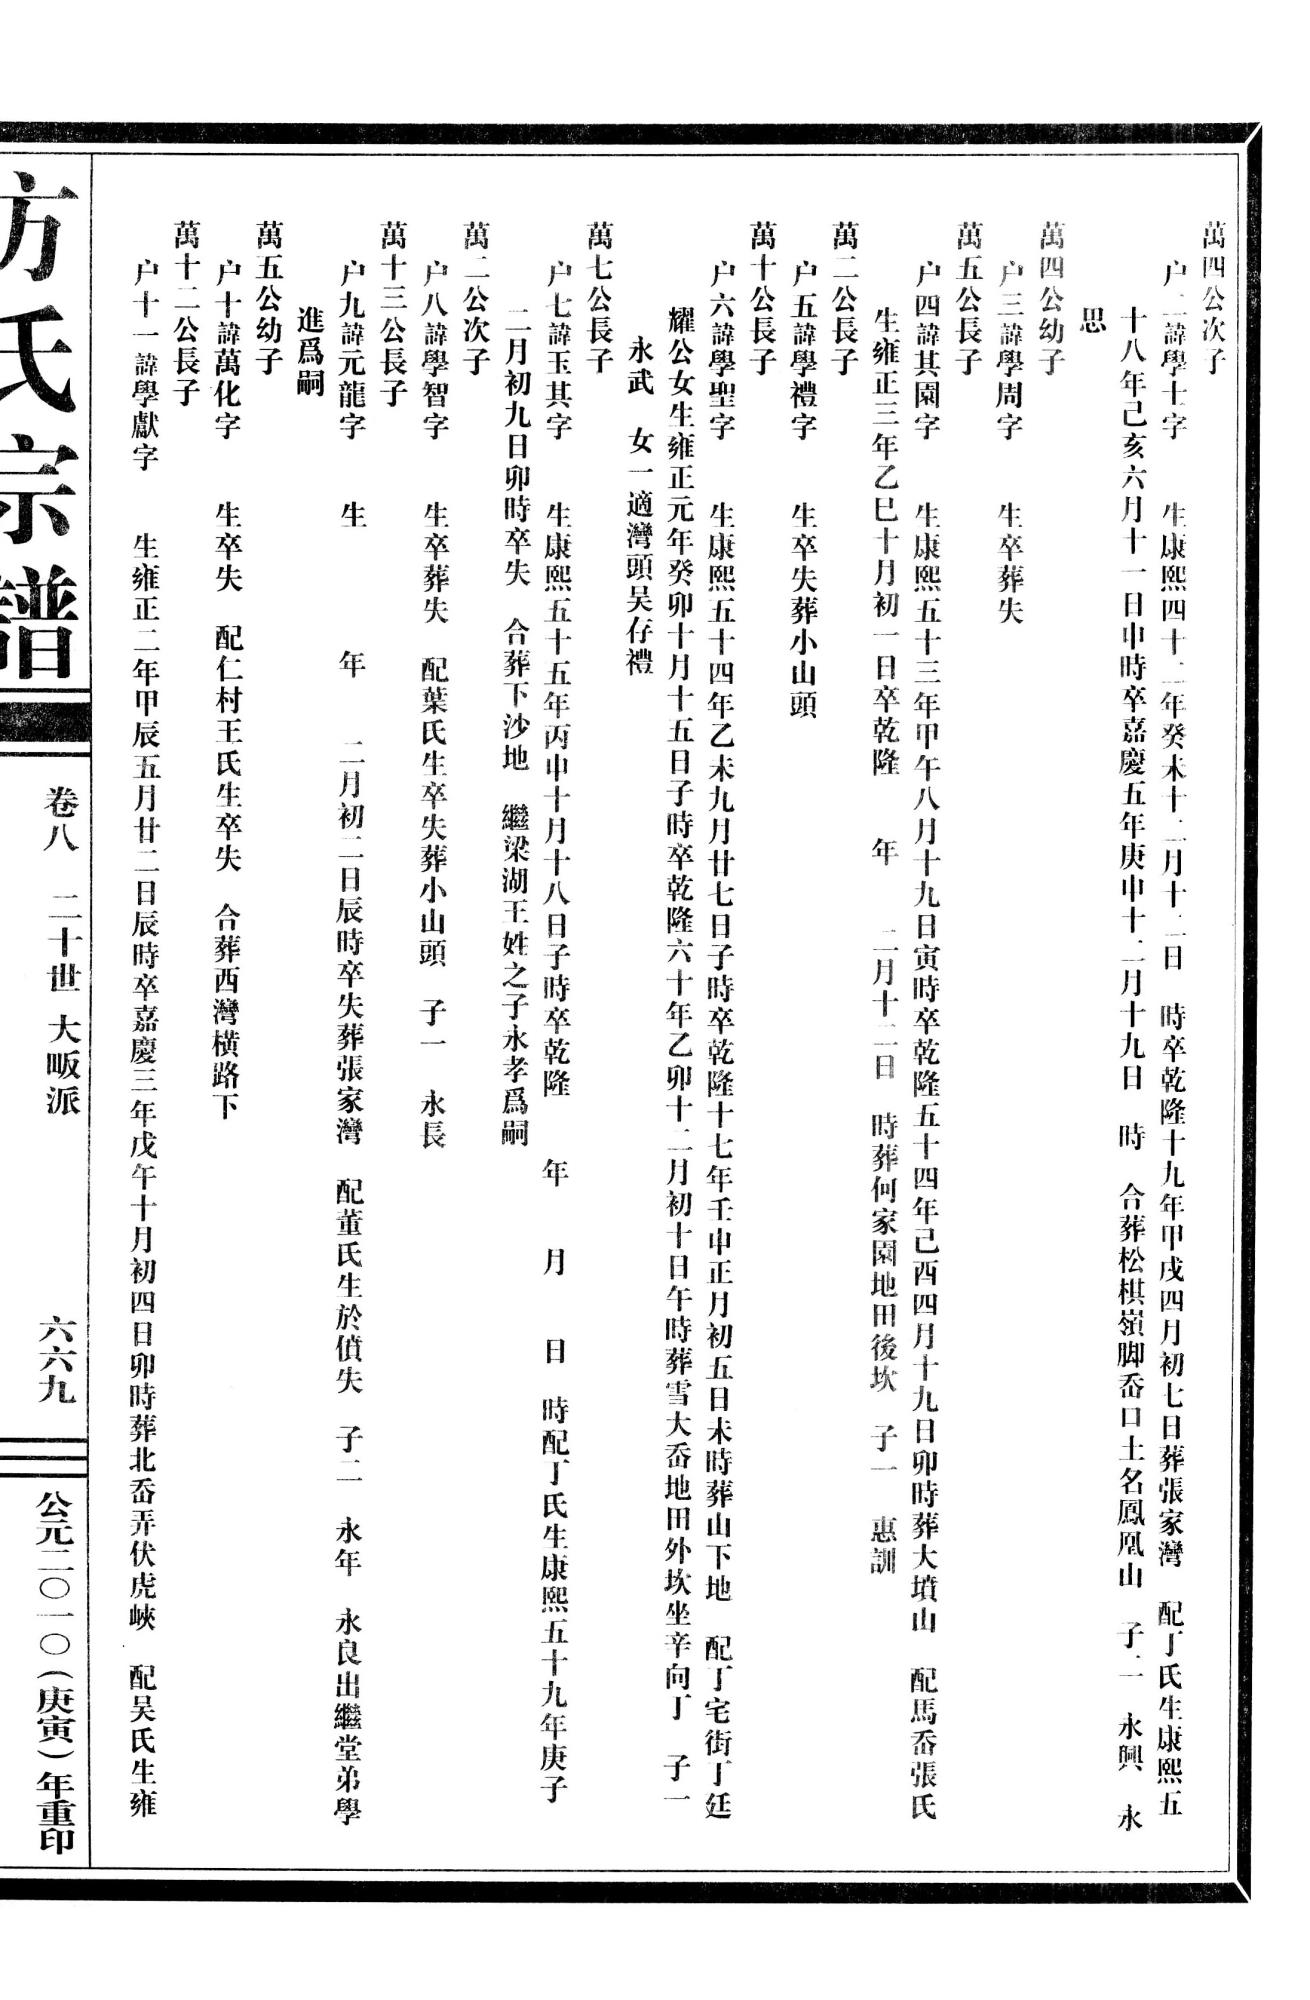 萬四公次子
户二諱學士字　　生康熙四十二年癸未十二月十二日　時卒乾隆十九年甲戌四月初七日葬張家灣　配丁氏生康熙五
十八年己亥六月十一日申時卒嘉慶五年庚申十二月十九日　時　合葬松棋嶺脚岙口土名鳳凰山　子二　永興　永
思
萬四公幼子
户三諱學周字　　生卒葬失
萬五公長子
户四諱其園字　　生康熙五十三年甲午八月十九日寅時卒乾隆五十四年己酉四月十九日卯時葬大墳山　配馬岙張氏
生雍正三年乙巳十月初一日卒乾隆　年　二月十二日　時葬何家園地田後坎　子一　惠訓
萬二公長子
户五諱學禮字　　生卒失葬小山頭
萬十公長子
户六諱學聖字　　生康熙五十四年乙未九月廿七日子時卒乾隆十七年壬申正月初五日未時葬山下地　配丁宅街丁廷
耀公女生雍正元年癸卯十月十五日子時卒乾隆六十年乙卯十二月初十日午時葬雪大岙地田外坎坐辛向丁　子一
永武　女一適灣頭吴存禮
萬七公長子
户七諱玉其字　　生康熙五十五年丙申十月十八日子時卒乾隆　年　月　日　時配丁氏生康熙五十九年庚子
二月初九日卯時卒失　合葬下沙地　繼梁湖王姓之子永孝爲嗣
萬二公次子
户八諱學智字　　生卒葬失　配葉氏生卒失葬小山頭　子一　永長
萬十三公長子
户九諱元龍字　　生　　年　　二月初二日辰時卒失葬張家灣　配董氏生於僨失　子二　永年　永良出繼堂弟學
進爲嗣
萬五公幼子
户十諱萬化字　　生卒失　配仁村王氏生卒失　合葬西灣横路下
萬十二公長子
户十一諱學獻字　　生雍正二年甲辰五月廿二日辰時卒嘉慶三年戊午十月初四日卯時葬北岙弄伏虎峽　配吴氏生雍
方氏宗譜
卷八　二十世　大畈派
六六九
公元二〇一〇（庚寅）年重印